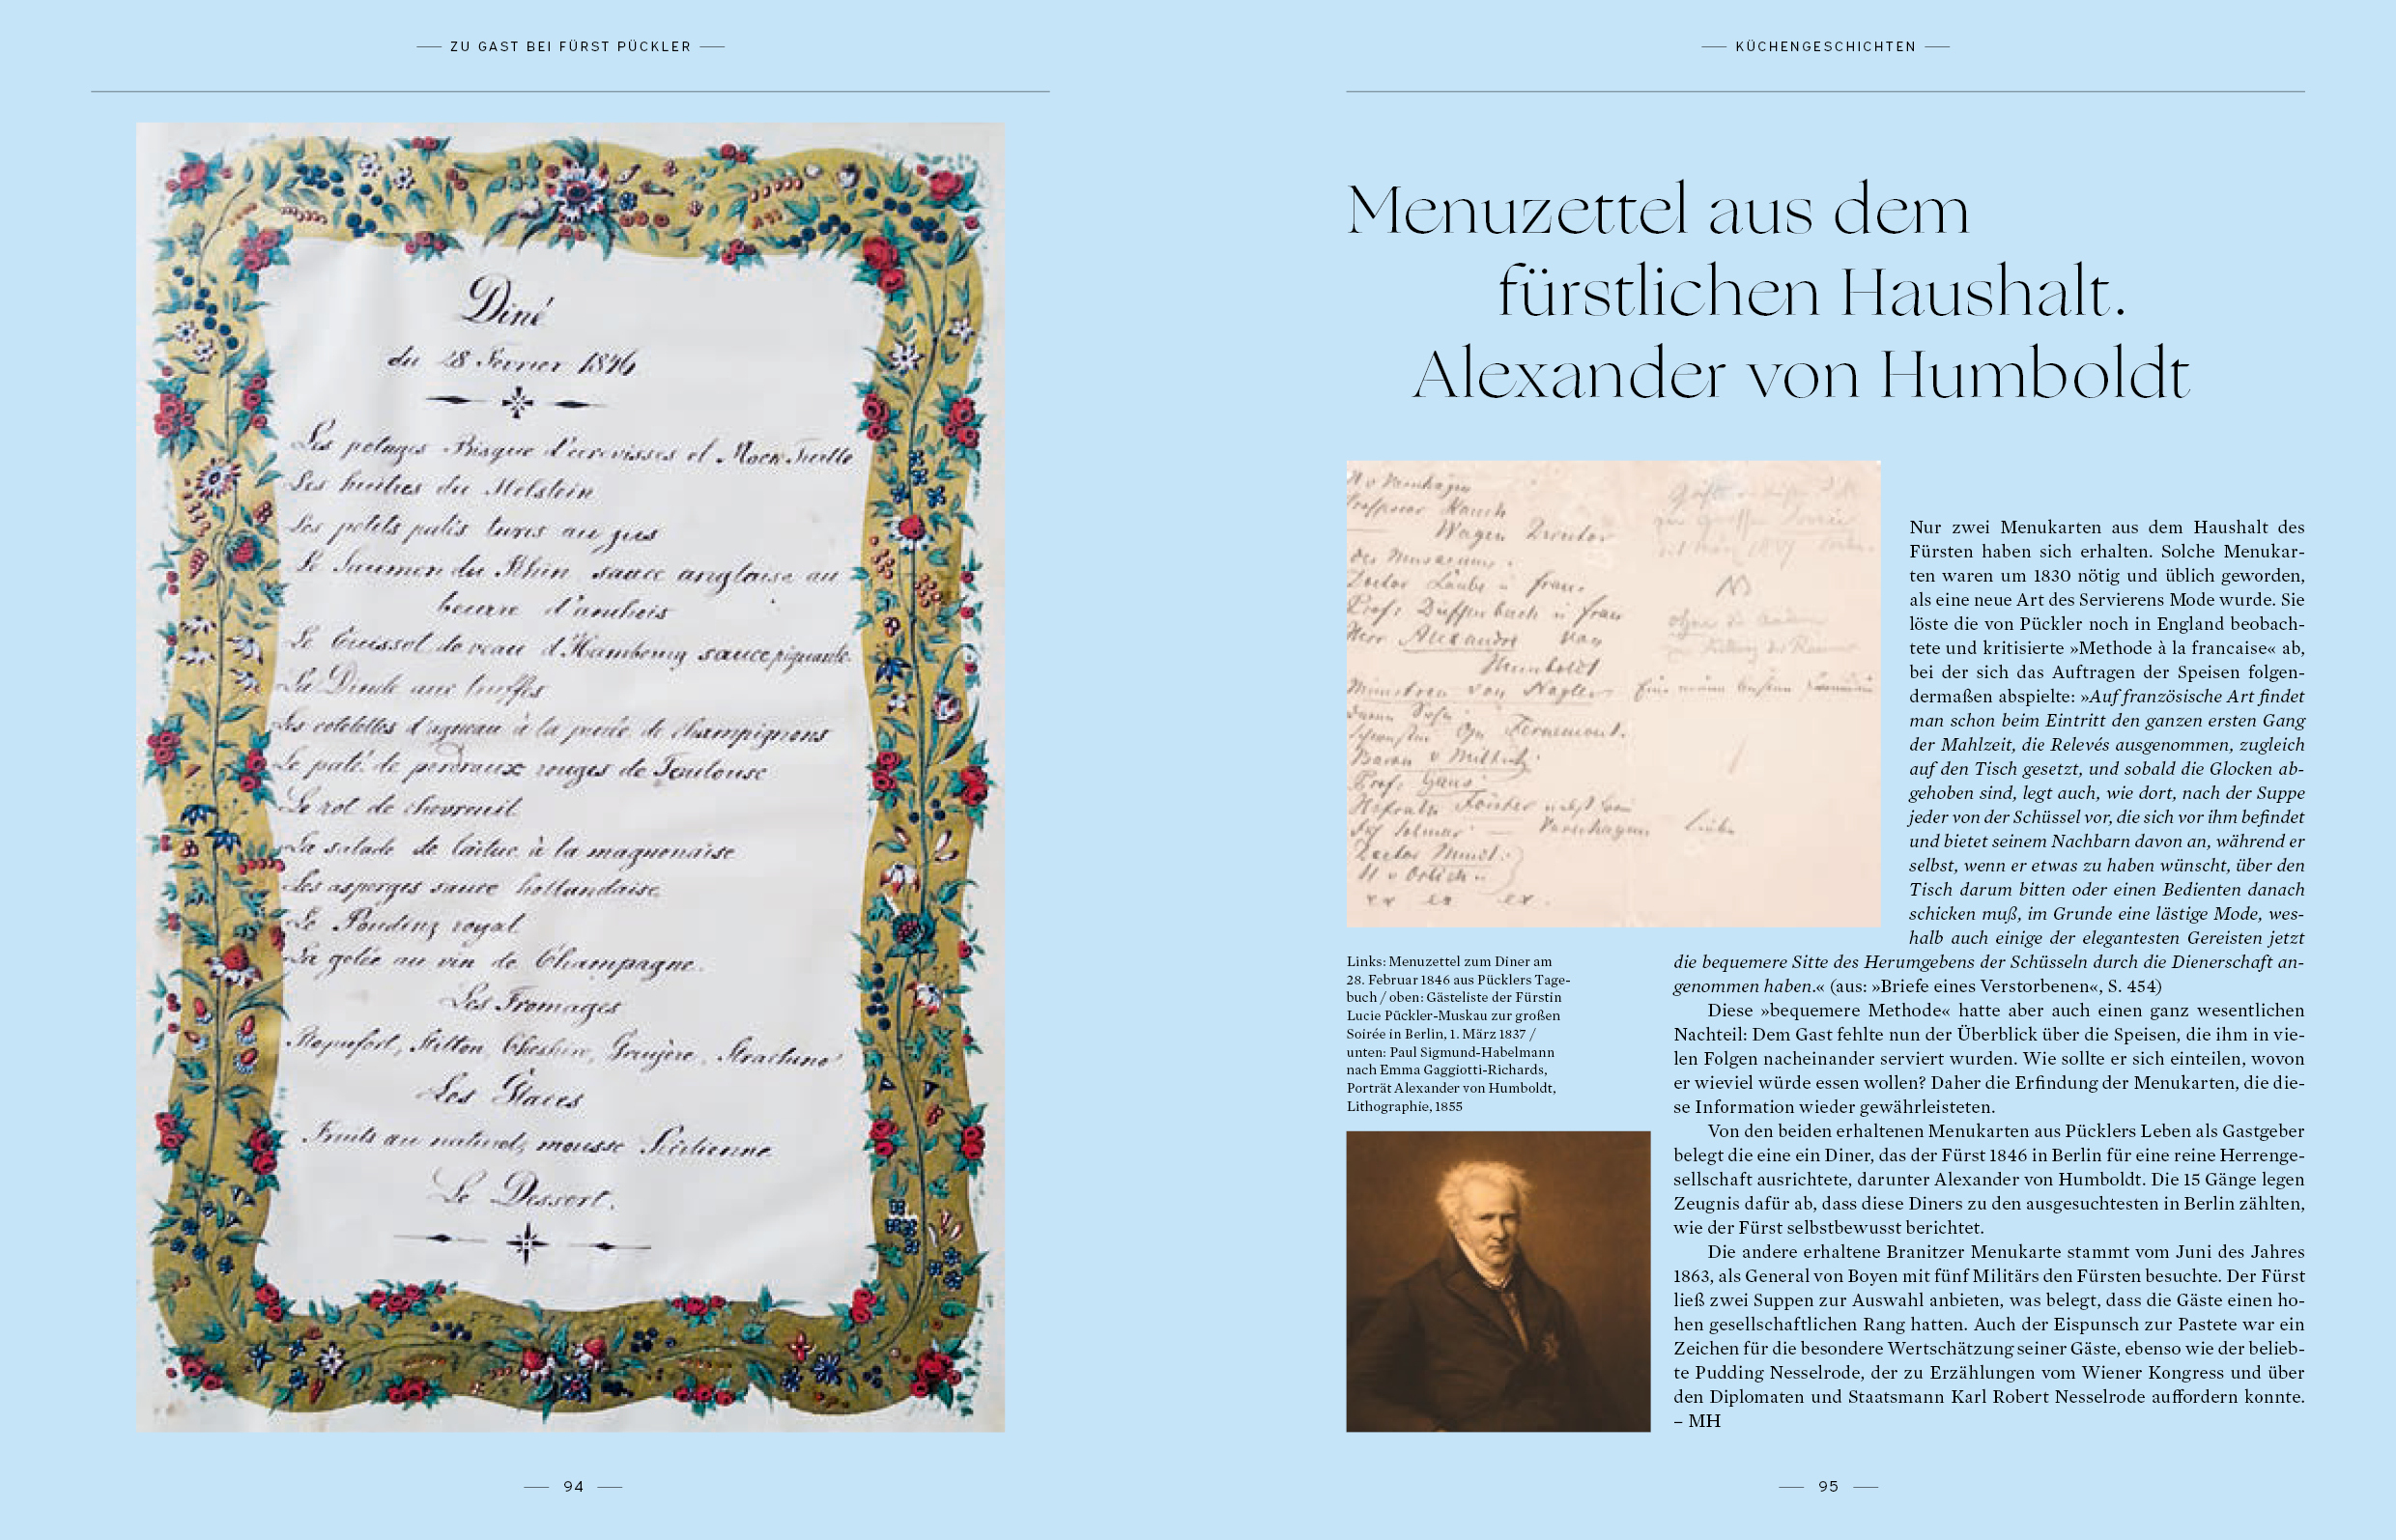 ZU GAST BEI FÜRST PÜCKLER
Diné
du 28 Fevrier 1846
Les potages Bisque d'ecrevisses et Mock Turtle
Les huitres du Holstein
Les petits patés au jus
Le Saumon du Rhin sauce anglaise au
beurre d'anchois
Le Cuissot de veau d'Hambourg sauce piquante
La Dinde aux truffes
Les cotelettes d'agneau à la purée de champignons
Le paté de perdraux rouges de Toulouse
Le rot de chevreuil
La salade de laitue à la magnonaise
Les asperges sauce hollandaise
Le Pouding royal
La gelée au vin de Champagne
Les Fromages
Roquefort, Stilton, Cheshire, Gruyère, Strachino
Les Glaces
Fruits au naturel, mousse Sicilienne
Le Dessert.
94
KÜCHENGESCHICHTEN
Menuzettel aus dem
fürstlichen Haushalt.
Alexander von Humboldt
Professor Rauch
Wagen Director
des Museums
Doctor Laube u frau
Prof: Dieffenbach u frau
Herr Alexander von
Humboldt
von Nagler
Baron v
Prof: Gans
Varnhagen
Doctor
Nur zwei Menukarten aus dem Haushalt des
Fürsten haben sich erhalten. Solche Menukar-
ten waren um 1830 nötig und üblich geworden,
als eine neue Art des Servierens Mode wurde. Sie
löste die von Pückler noch in England beobach-
tete und kritisierte »Methode à la francaise« ab,
bei der sich das Auftragen der Speisen folgen-
dermaßen abspielte: »Auf französische Art findet
man schon beim Eintritt den ganzen ersten Gang
der Mahlzeit, die Relevés ausgenommen, zugleich
auf den Tisch gesetzt, und sobald die Glocken ab-
gehoben sind, legt auch, wie dort, nach der Suppe
jeder von der Schüssel vor, die sich vor ihm befindet
und bietet seinem Nachbarn davon an, während er
selbst, wenn er etwas zu haben wünscht, über den
Tisch darum bitten oder einen Bedienten danach
schicken muß, im Grunde eine lästige Mode, wes-
halb auch einige der elegantesten Gereisten jetzt
die bequemere Sitte des Herumgebens der Schüsseln durch die Dienerschaft an-
genommen haben.« (aus: »Briefe eines Verstorbenen«, S. 454)
Diese »bequemere Methode« hatte aber auch einen ganz wesentlichen
Nachteil: Dem Gast fehlte nun der Überblick über die Speisen, die ihm in vie-
len Folgen nacheinander serviert wurden. Wie sollte er sich einteilen, wovon
er wieviel würde essen wollen? Daher die Erfindung der Menukarten, die die-
se Information wieder gewährleisteten.
Von den beiden erhaltenen Menukarten aus Pücklers Leben als Gastgeber
belegt die eine ein Diner, das der Fürst 1846 in Berlin für eine reine Herrenge-
sellschaft ausrichtete, darunter Alexander von Humboldt. Die 15 Gänge legen
Zeugnis dafür ab, dass diese Diners zu den ausgesuchtesten in Berlin zählten,
wie der Fürst selbstbewusst berichtet.
Die andere erhaltene Branitzer Menukarte stammt vom Juni des Jahres
1863, als General von Boyen mit fünf Militärs den Fürsten besuchte. Der Fürst
ließ zwei Suppen zur Auswahl anbieten, was belegt, dass die Gäste einen ho-
hen gesellschaftlichen Rang hatten. Auch der Eispunsch zur Pastete war ein
Zeichen für die besondere Wertschätzung seiner Gäste, ebenso wie der belieb-
te Pudding Nesselrode, der zu Erzählungen vom Wiener Kongress und über
den Diplomaten und Staatsmann Karl Robert Nesselrode auffordern konnte.
– MH
Links: Menuzettel zum Diner am
28. Februar 1846 aus Pücklers Tage-
buch / oben: Gästeliste der Fürstin
Lucie Pückler-Muskau zur großen
Soirée in Berlin, 1. März 1837 /
unten: Paul Sigmund-Habelmann
nach Emma Gaggiotti-Richards,
Porträt Alexander von Humboldt,
Lithographie, 1855
95